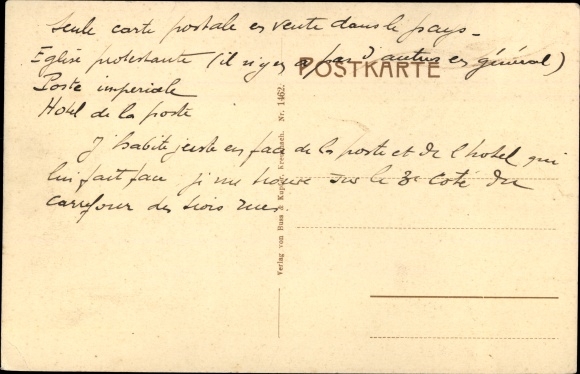 Seule carte postale en vente dans le pays -
Eglise protestante (il n'y en a pas d'autres en général)
POSTKARTE
Poste imperiale
Hotel de la poste
J'habite juste en face de la poste et de l'hotel qui
lui fait face je me trouve sur le 3e coté du
carrefour des trois rues
Verlag von Buss & Kreuznach. Nr. 1462.